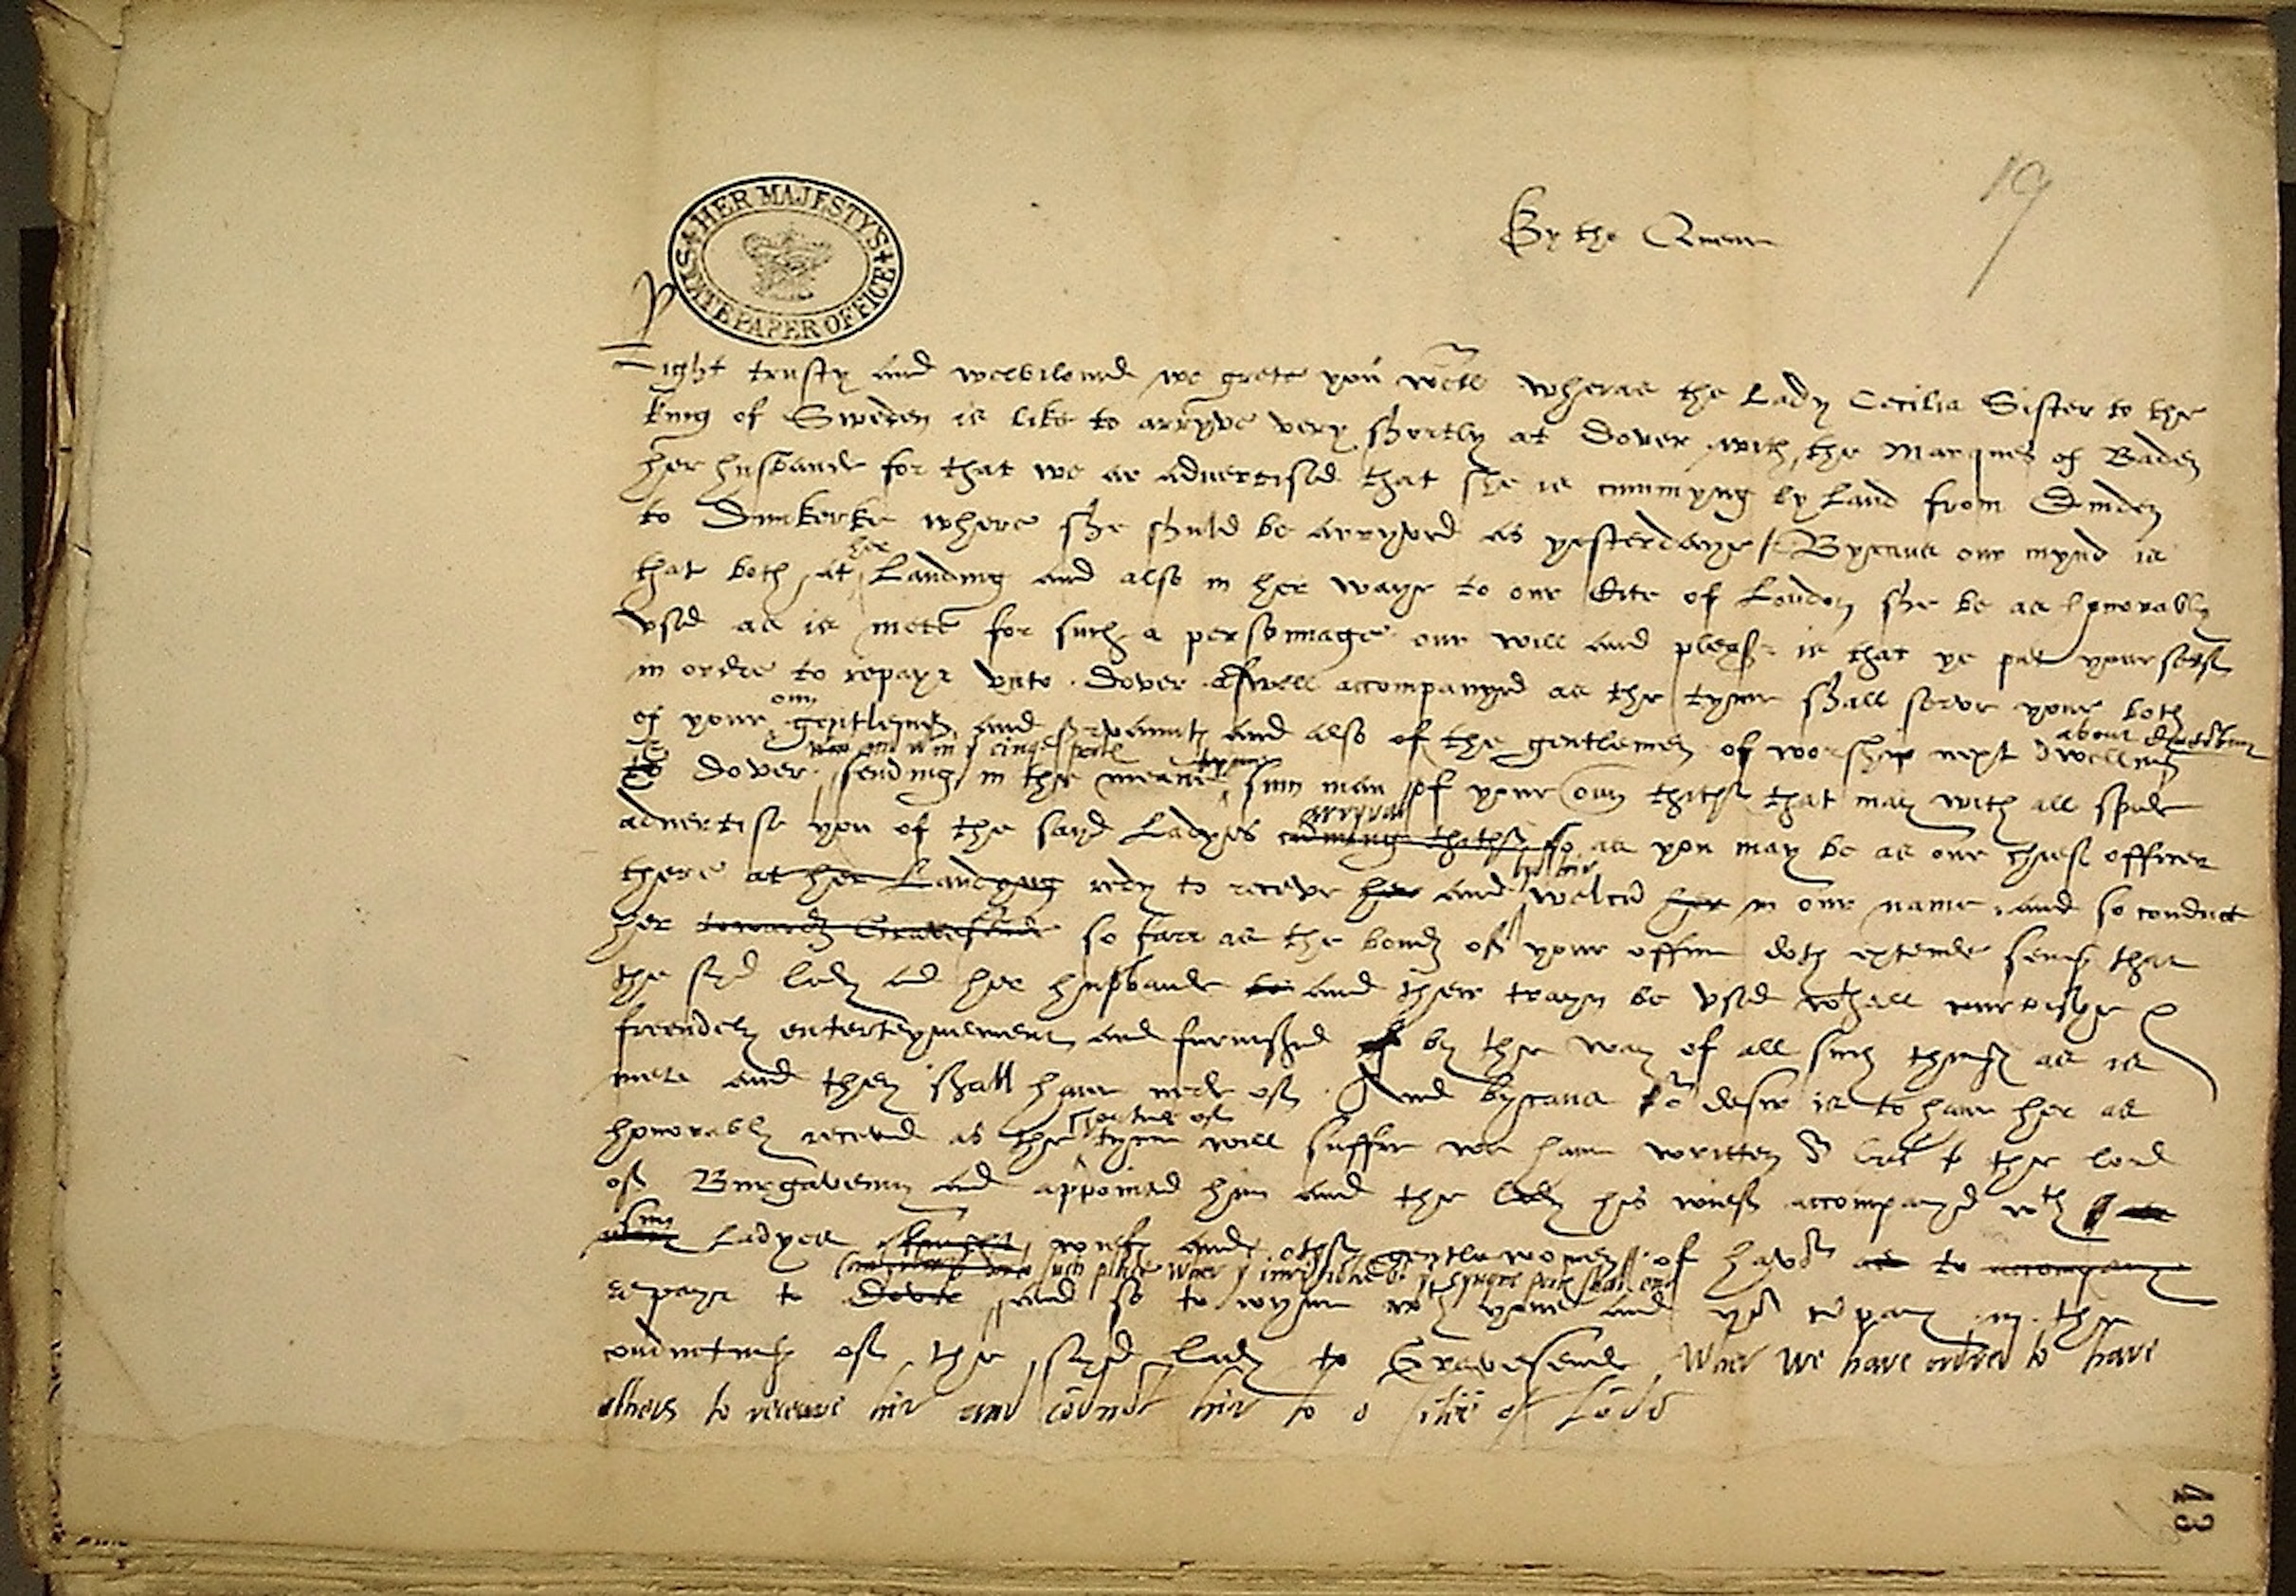 19
By the Quene
HER MAJESTYS STATE PAPER OFFICE
Right trusty and welbiloued we grete you well wheras the Lady Cecilia Sister to the
king of Sweden is like to arryve very shortly at Dover with the Marques of Baden
her husbande for that we ar aduertised that she is cummyng by Land from Emden
to Dunkerke where she shuld be arryued as yesterdaye / Bycaus our mynd is
that both at her Landing and also in her waye to our Cite of London she be as honorably
vsed as is mete for such a personnage our will and pleasr is that ye put your self
in ordre to repayr vnto Dover aswell accompanyed as the tyme shall serve youe both
of your own gentlemen and servauntes and also of the gentlemen of worship next dwelling about
to Dover sending in the meane tyme sum man of your own thither that may with all spede
aduertise you of the sayd Ladyes cuming thither arryval so as you may be as our chief officer
there at her Landyng redy to receyve her and welcom her in our name and so conduct
her towardes Gravesende so farr as the bondes of your office doth extende seing that
the sayd lady and her husbande and their trayn be vsed with all curtisye
freendely enterteynement and furnished by the way of all such thinges as is
mete and they shall haue nede of And bycaus or desir is to haue her as
honorably receued as the shortnes of tyme will suffre we haue written or lres to the lord
of Burgaveny and appointed him and the lady his wief accompanyed wth
sum Ladyes knightes wiefes and other gentlewomen of havor to accompany
repayr to Dover such place and so to ioyne wth youe and yor cōpany in the
conducting of the sayd lady to Gravesende wher we have ordred to have
others to receave hir and cōduct hir to or citie of Lōdō
43